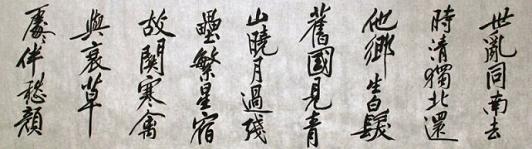 世亂同南去
時清獨北還
他鄉生白髮
舊國見青
山曉月過殘
壘繁星宿
故關寒禽
與衰草
處々伴愁顏